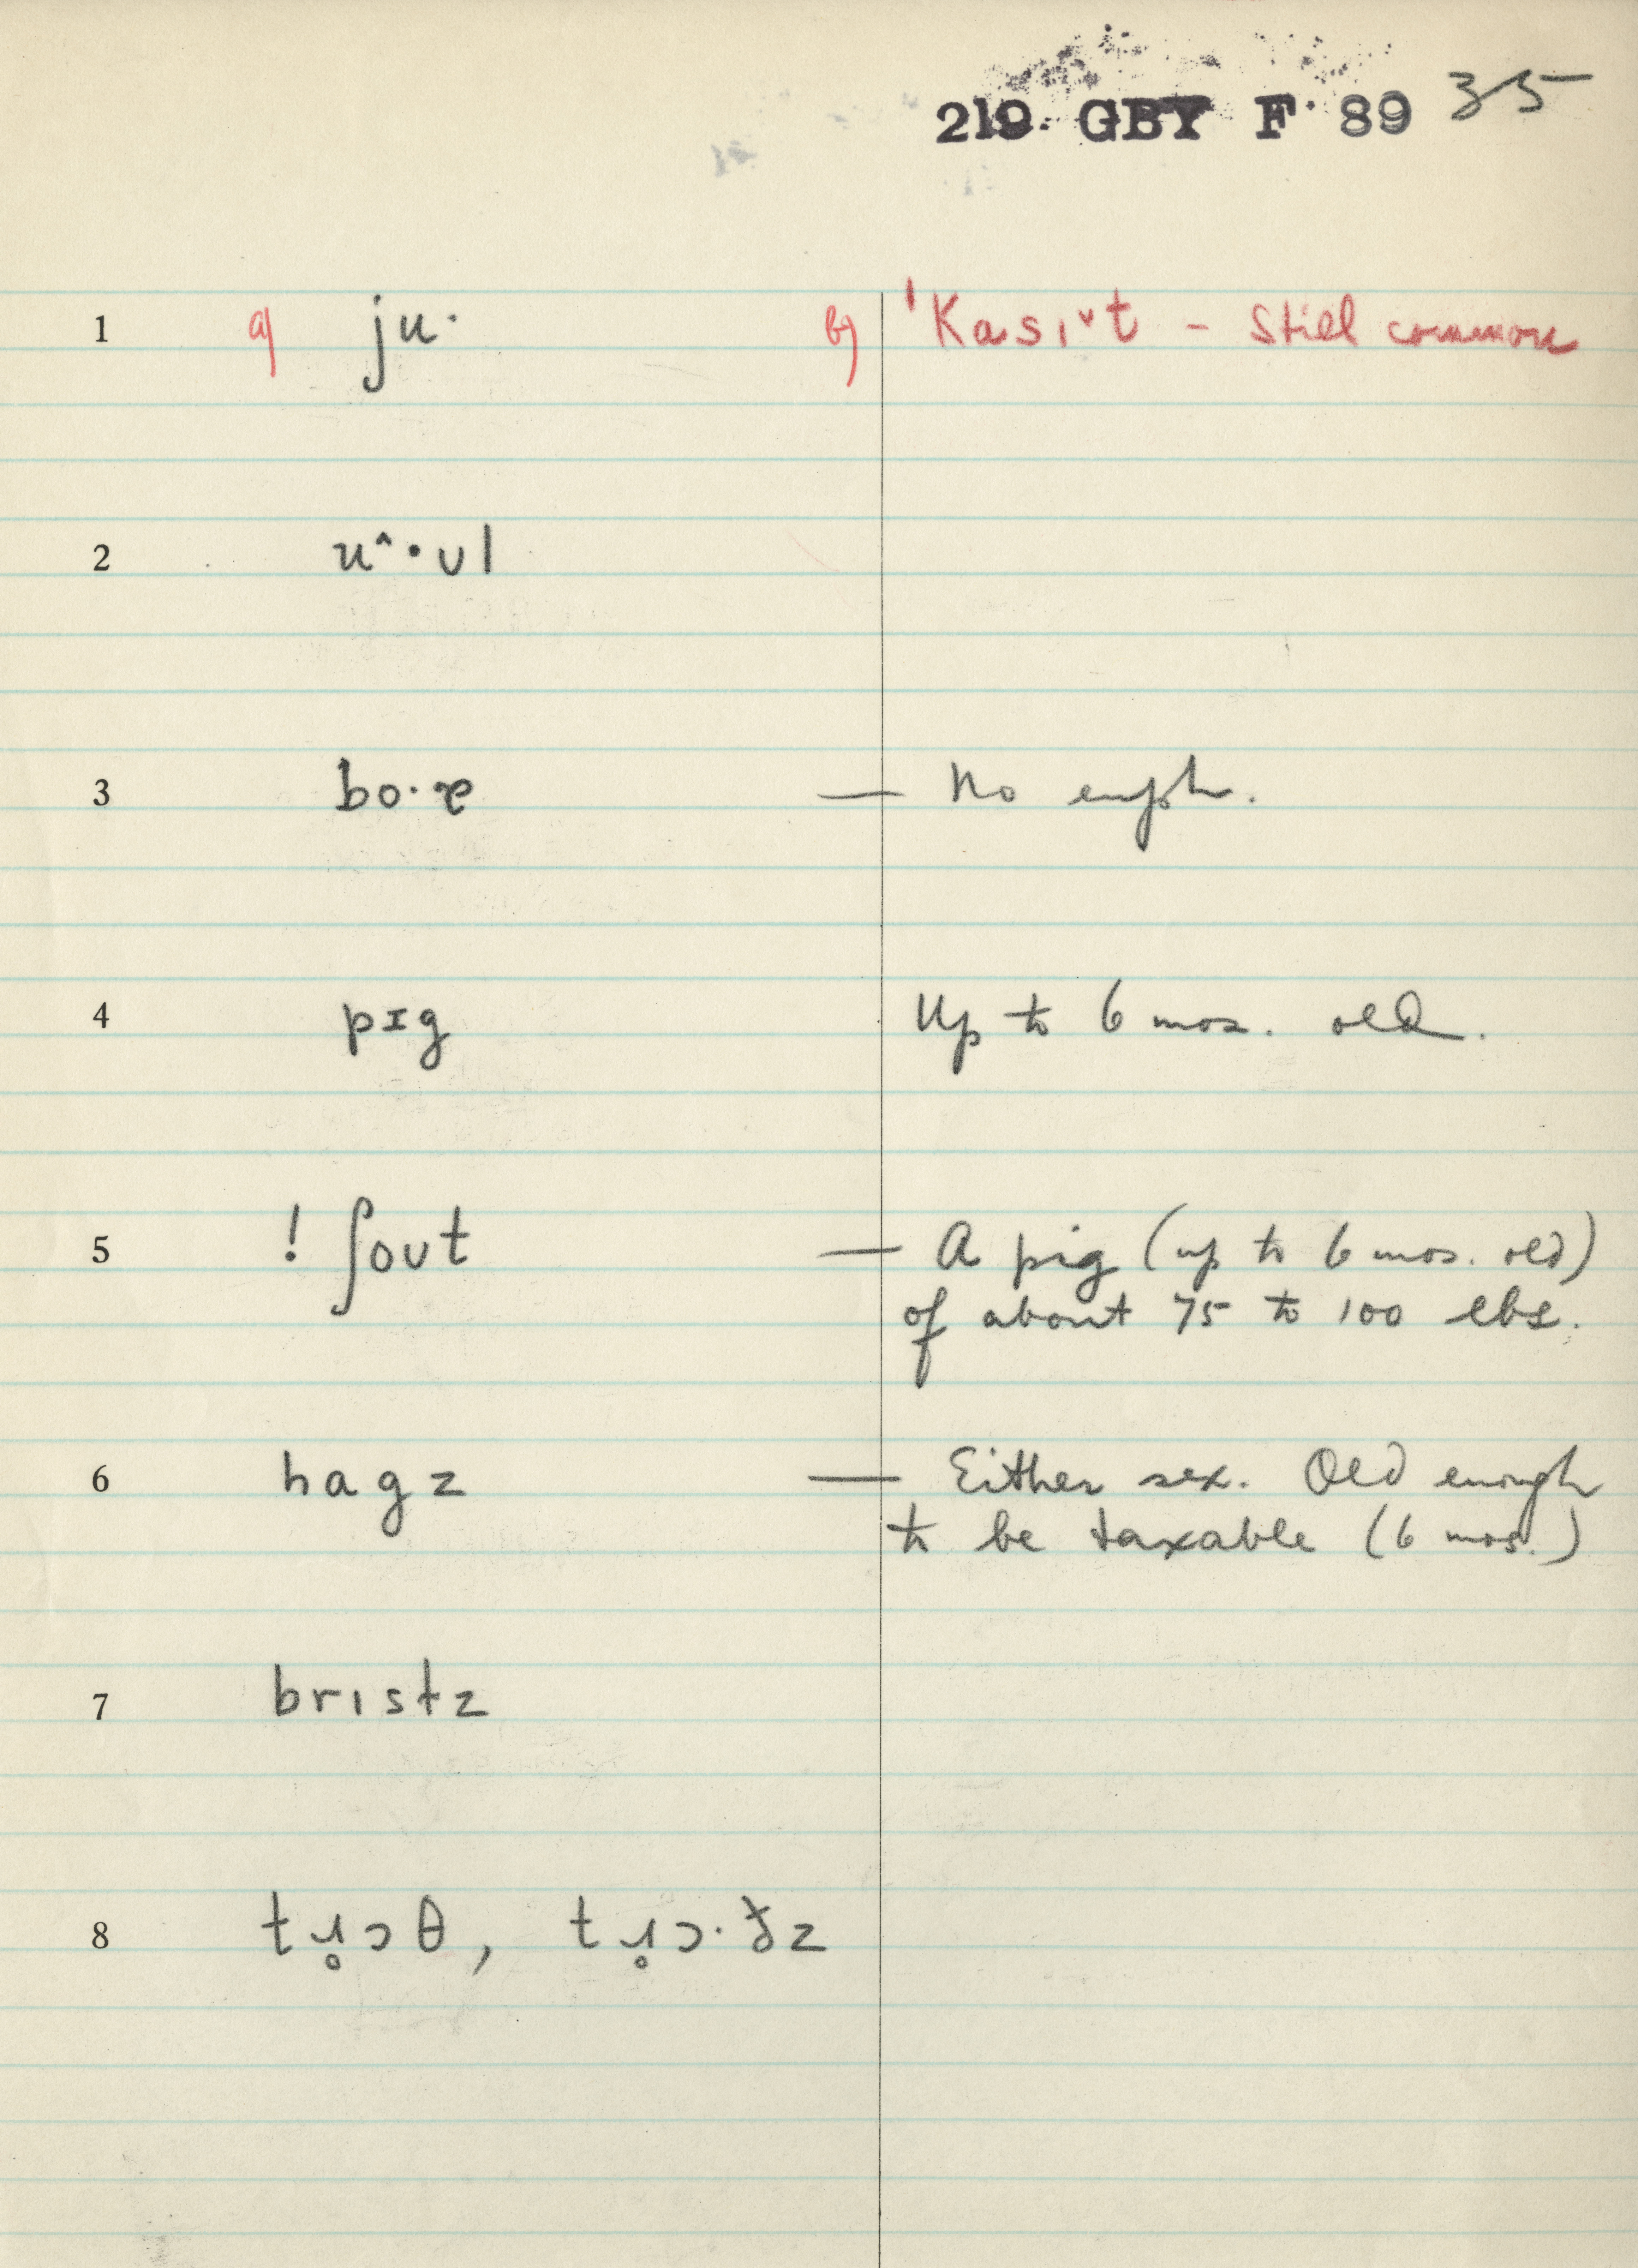 219 GBY F 89 35
1 a) ju· b) ˈKasɩ˅t – Still common
2 u^·ʋl
3 bo·ɚ — No euph.
4 pɪg Up to 6 mos. old.
5 ! ʃoʋt — A pig (up to 6 mos. old)
of about 75 to 100 lbs.
6 hagz — Either sex. Old enough
to be taxable (6 mos.)
7 brɩstz
8 tɹ̥ɔθ, tɹ̥ɔ·ðz